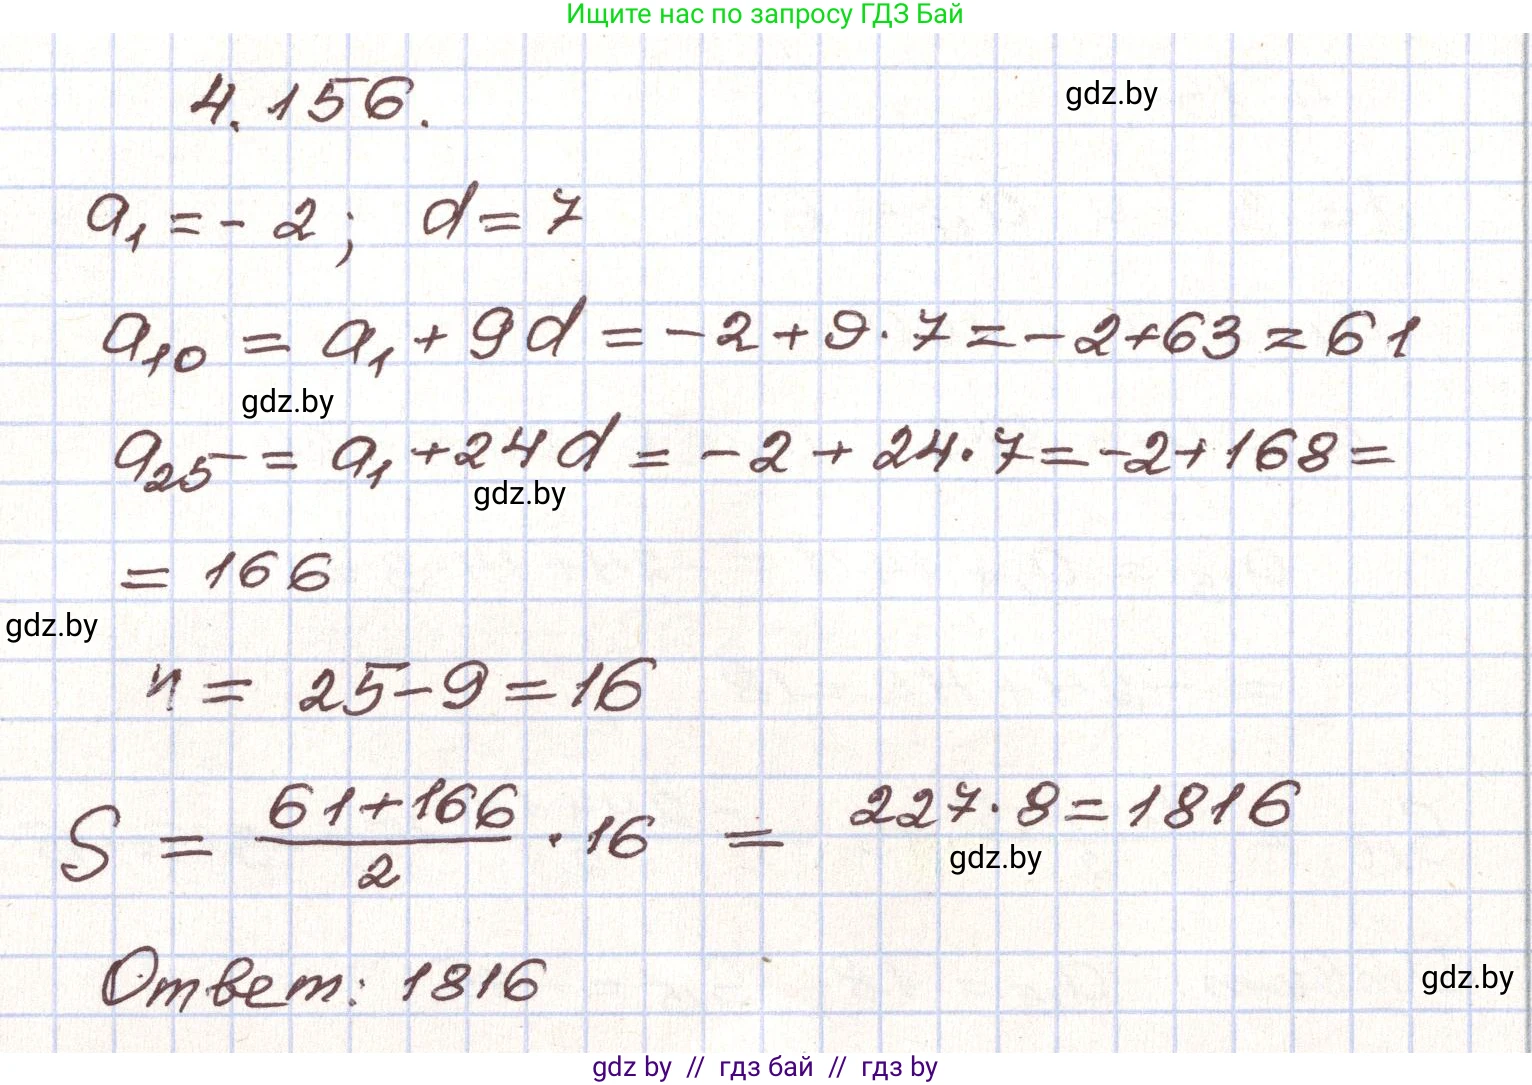 Ищите нас по запросу ГДЗ Бай
4.156.
gdz.by
a₁ = - 2 ; d = 7
a₁₀ = a₁ + 9d = -2 + 9 · 7 = -2 + 63 = 61
gdz.by
a₂₅ = a₁ + 24d = -2 + 24 · 7 = -2 + 168 =
gdz.by
= 166
gdz.by
n = 25 - 9 = 16
S = (61 + 166)/2 · 16 = 227 · 8 = 1816
gdz.by
Ответ: 1816
gdz.by
gdz by // гдз бай // гдз by